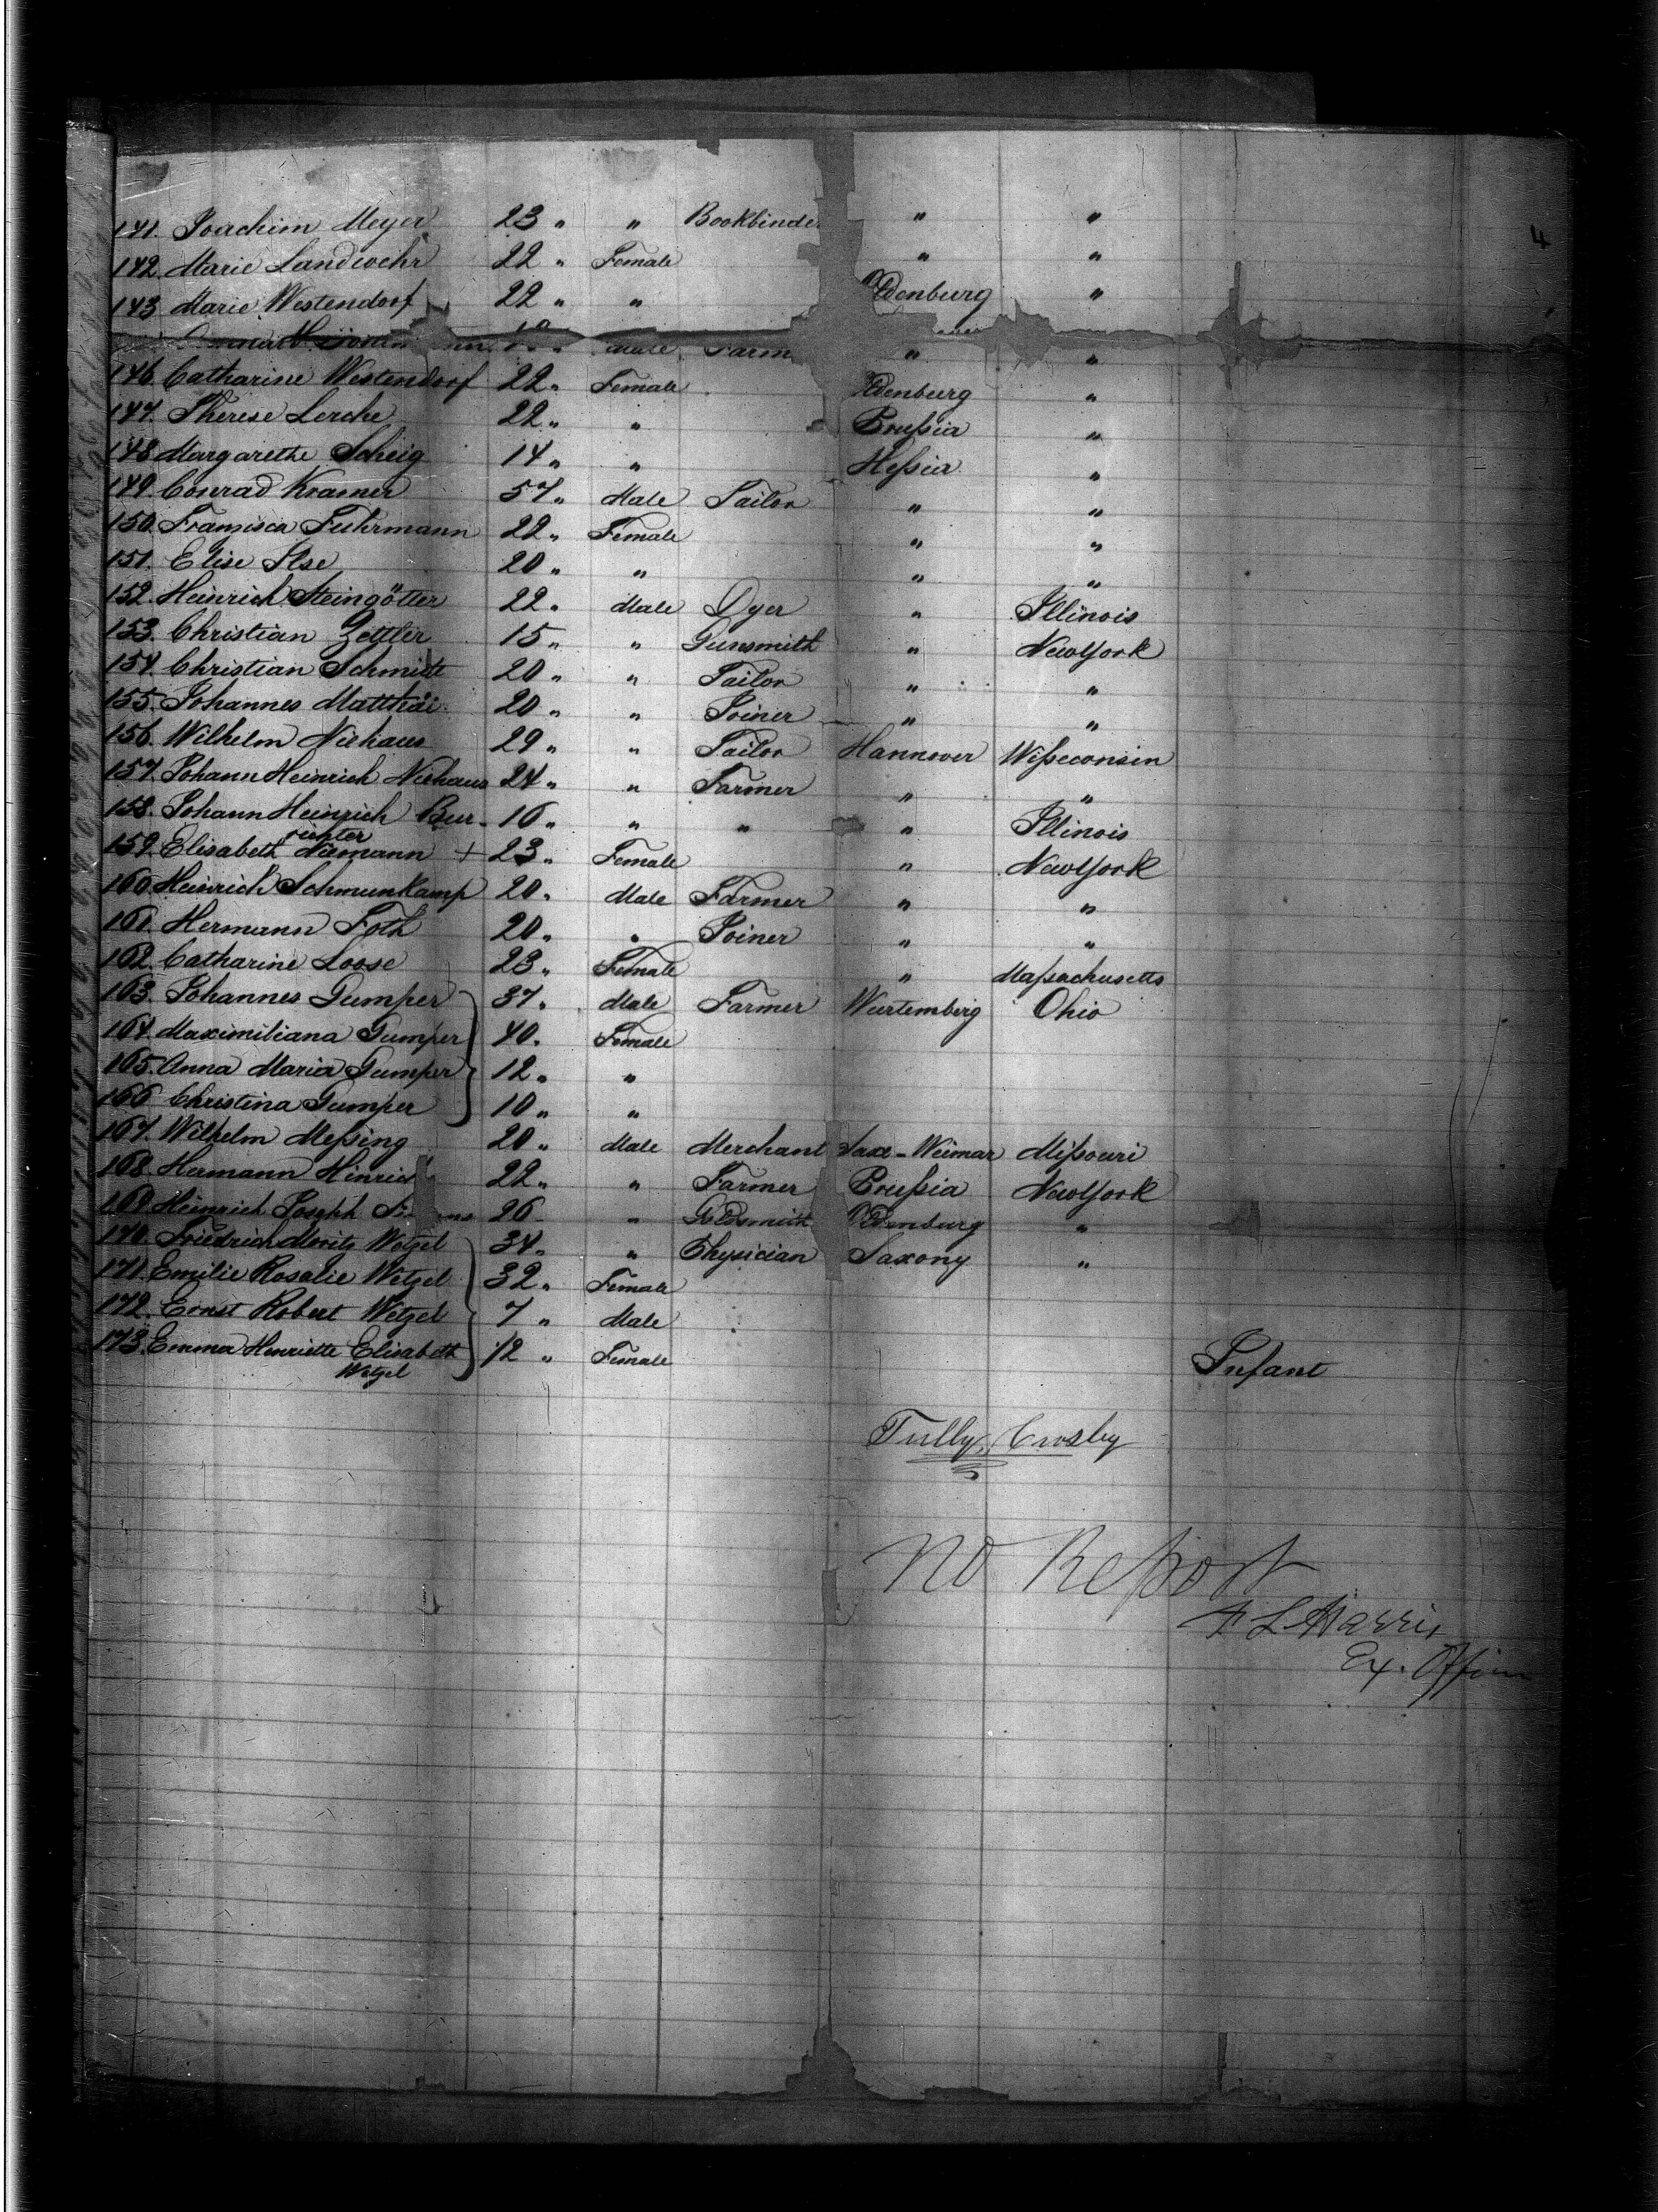 4
141. Joachim Meyer 23 " " Bookbinde " "
142. Marie Landwehr 22 " Female " "
143 Marie Westendorf 22 " " Oldenburg "
Male Farm " "
146. Catharine Westendorf 22 " Female Oldenburg "
147. Therese Lerche 22 " " Prußia "
148 Margarethe Scheig 14 " " Heßia "
149. Conrad Kramer 57 " Male Tailor " "
150. Franzisca Fuhrmann 22 " Female " "
151. Elise Ilse 20 " " " "
152. Heinrich Steingötter 22 " Male Dyer " Illinois
153. Christian Zettler 15 " " Gunsmith " NewYork
154. Christian Schmidt 20 " " Tailor " "
155. Johannes Matthäi 20 " " Joiner " "
156. Wilhelm Niehaus 29 " " Tailor Hannover Wißeconsin
157. Johann Heinrich Niehaus 24 " " Farmer " "
158. Johann Heinrich Bur- 16 " " " " Illinois
richter
159. Elisabeth Niemann + 23 " Female " NewYork
160. Heinrich Schmunkamp 20 " Male Farmer " "
161. Hermann Foth 20 " " Joiner " "
162. Catharine Loose 23 " Female " Maßachusetts
163. Johannes Gumper 37 " Male Farmer Wurtemberg Ohio
164. Maximiliana Gumper 40 " Female
165. Anna Maria Gumper 12 " "
166 Christina Gumper 10 " "
167. Wilhelm Meßing 20 " Male Merchant Saxe-Weimar Mißouri
168. Hermann Hinric 22 " " Farmer Prußia NewYork
169 Heinrich Joseph 26 " " Goldsmith Oldenburg "
170. Friedrich Moritz Wetzel 34 " " Physician Saxony "
171. Emilie Rosalie Wetzel 32 " Female
172. Ernst Robert Wetzel 7 " Male
173. Emma Henriette Elisabeth 1/2 " Female Infant
Wetzel
Tully Crosby
No Report
F L Harris
Ex. Officer